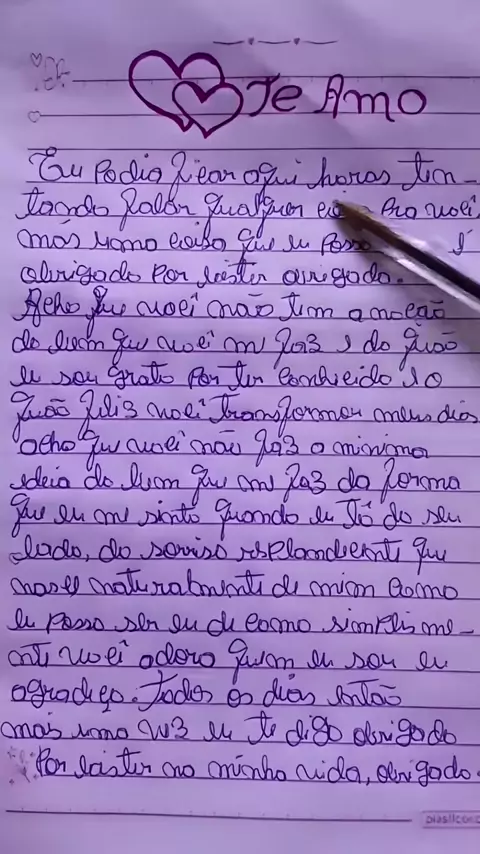 Te Amo
Eu Podia ficar aqui horas ten-
tando falar qualquer Pra você
mas uma coisa que eu Posso é
obrigado Por existir obrigado.
Acho que você não tem a noção
do bem que você me faz e do quão
eu sou grato Por ter conhecido e o
quão feliz você transformou meus dias
acho que você não faz a minima
ideia do bem que me faz da forma
que eu me sinto quando eu tô do seu
lado, do sorriso resplandecente que
nasce naturalmente de mim como
eu Posso ser eu de como simplisme-
nte você adora quem eu sou eu
agradeço. Todos os dias então
mais uma vez eu te digo obrigado
Por existir na minha vida, obrigado.